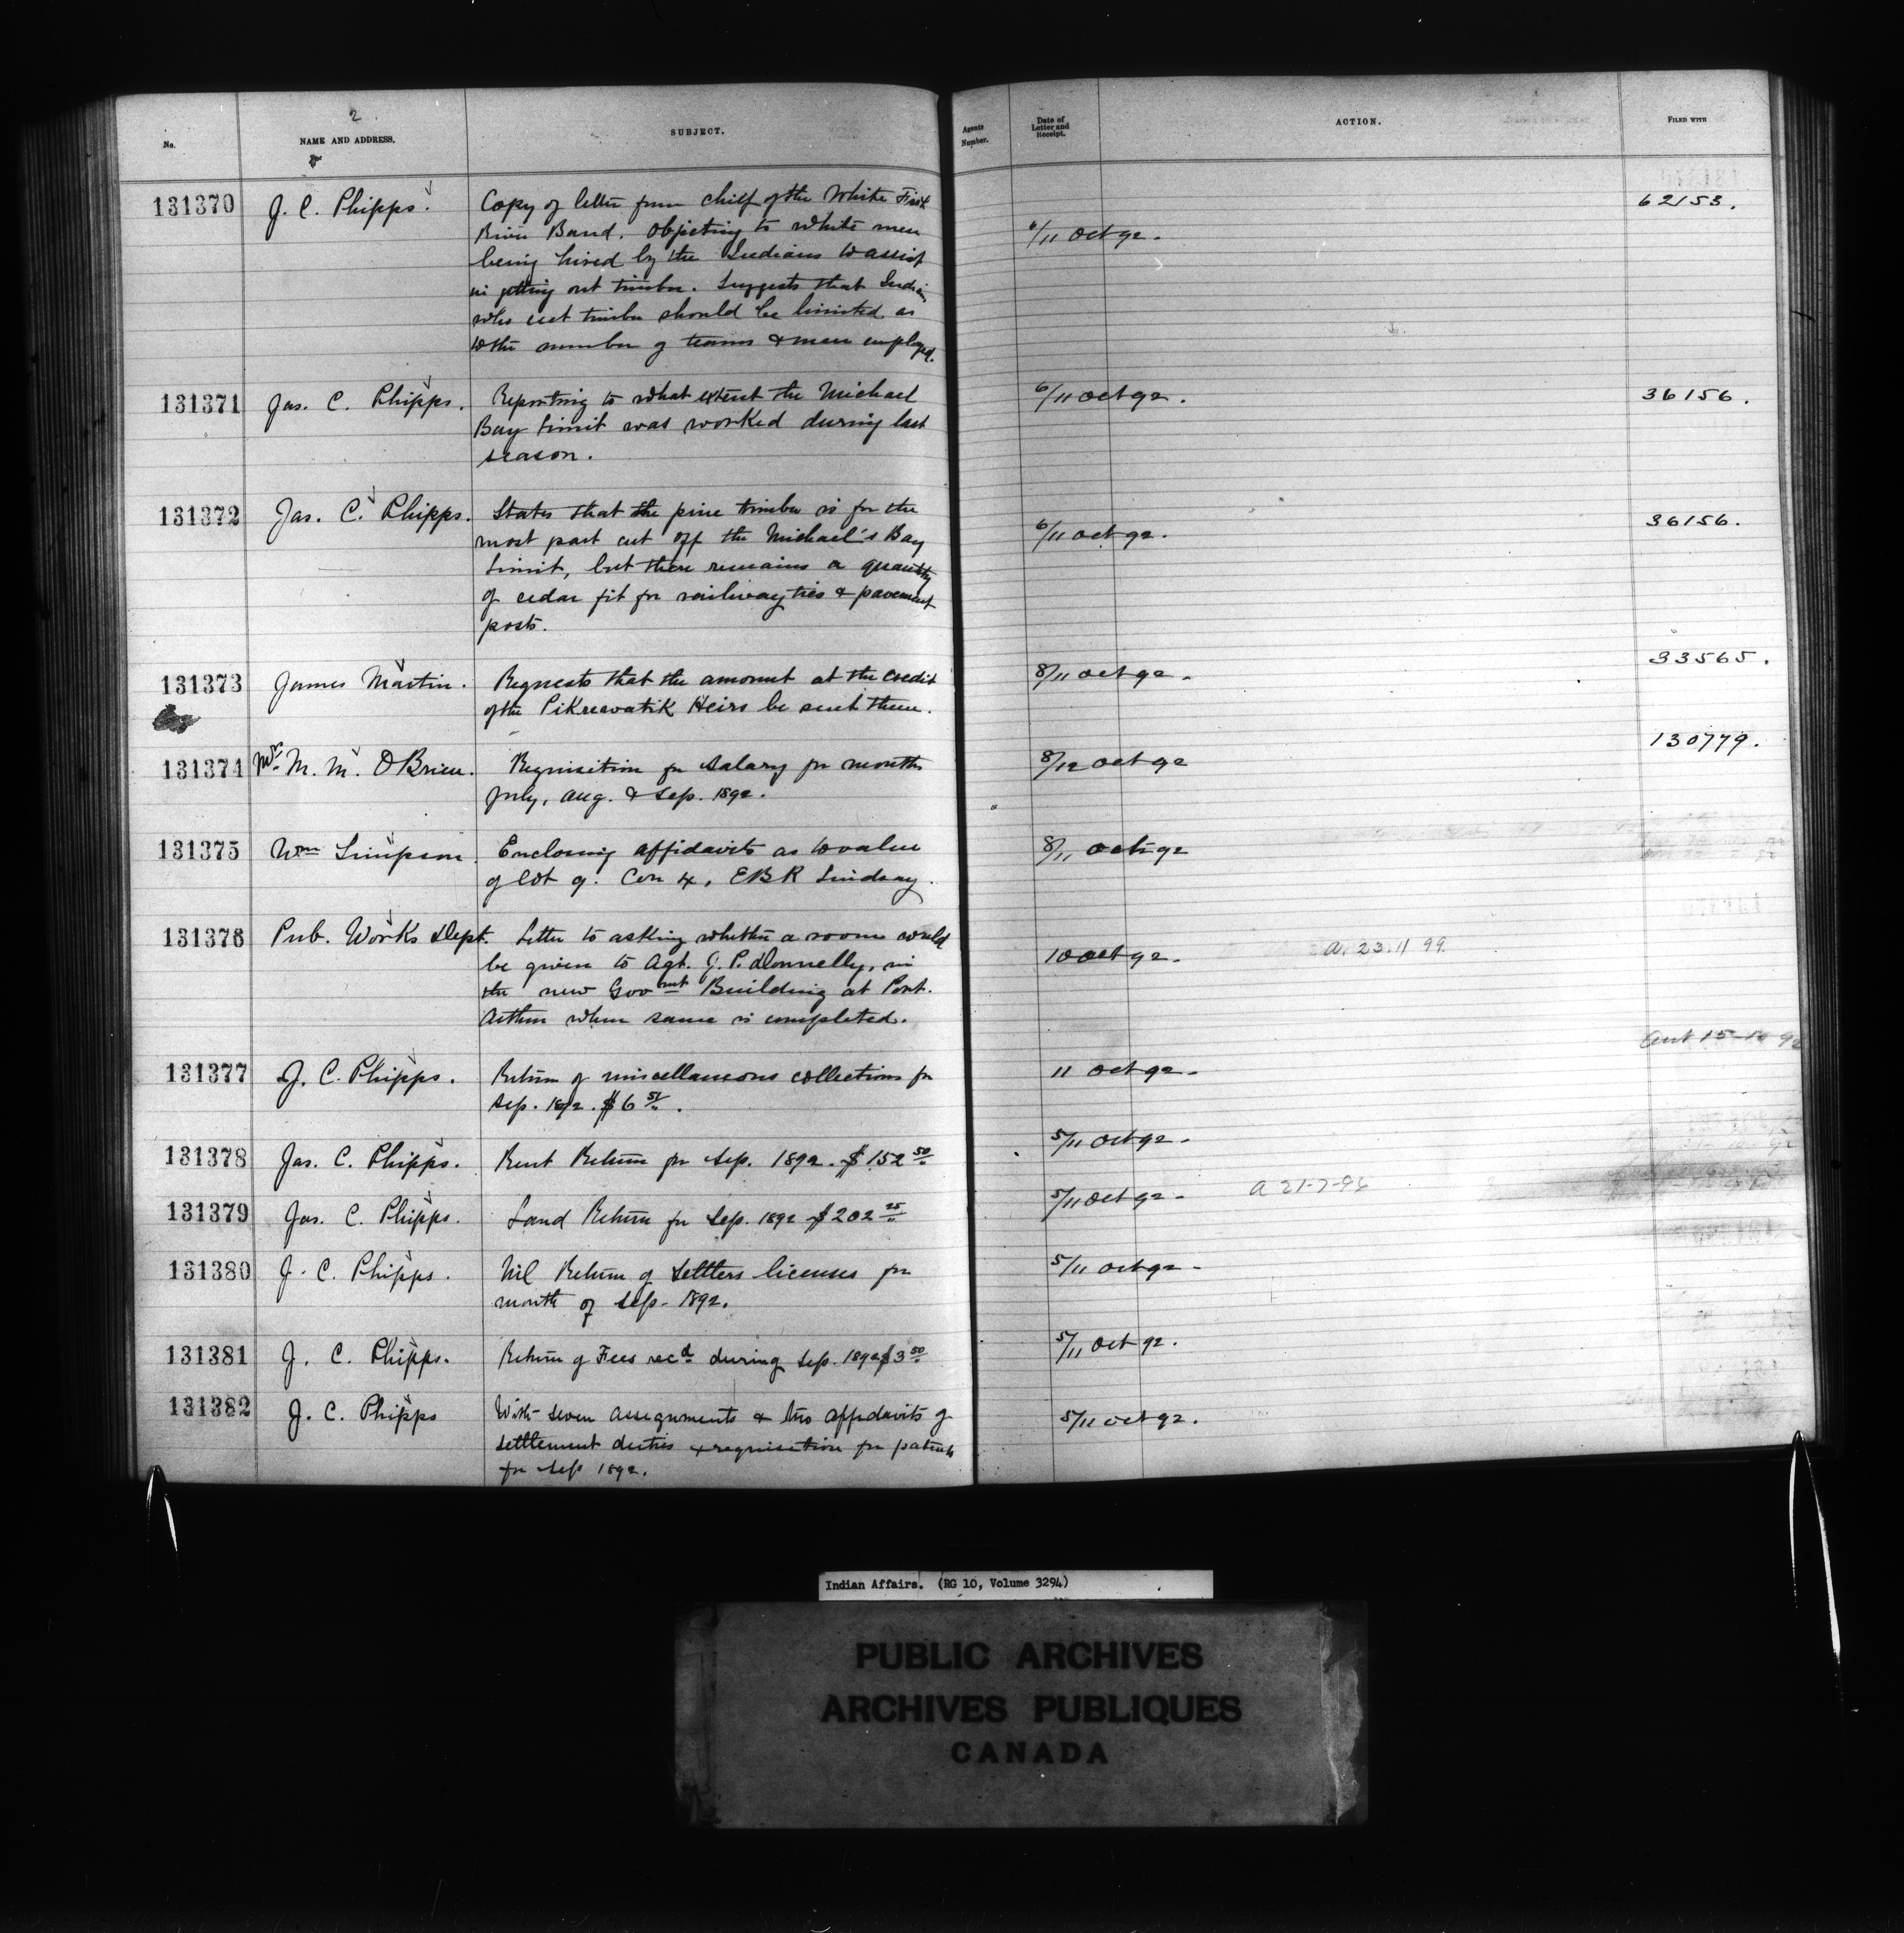 2
No.
NAME AND ADDRESS.
SUBJECT.
Agents Number.
Date of Letter and Receipt.
ACTION.
FILED WITH
131370 J. C. Phipps. Copy of letter from chief of the White Fish 62153.
River Band. Objecting to white men 6/11 Oct 92.
being hired by the Indians to assist
in getting out timber. Suggests that Indians
who cut timber should be limited as
to the number of teams & men employed.
131371 Jas. C. Phipps. Reporting to what extent the Michael 6/11 Oct 92. 36156.
Bay limit was worked during last
season.
131372 Jas. C. Phipps. States that the pine timber is for the 36156.
most part cut off the Michael's Bay 6/11 Oct 92.
Limit, but there remains a quantity
of cedar fit for railway ties & pavement
posts.
131373 James Martin. Requests that the amount at the credit 8/11 Oct 92. 33565.
of the Heirs be sent them.
131374 M. M. O'Brien. Requisition for salary for months 8/12 Oct 92 130779.
July, Aug. & Sep. 1892.
131375 Wm Simpson. Enclosing affidavits as to value 8/11 Oct 92
of lot 9. Con 4, EBR Lindsay.
131376 Pub. Works Dept. Letter to asking whether a room could
be given to Agt. J. P. Donnelly, in 10 Oct 92. a. 23.11 99.
the new Govmt Building at Port.
Arthur when same is completed.
15-10 92
131377 J. C. Phipps. Return of miscellaneous collections for 11 Oct 92.
Sep. 1892. $6 51/"
131378 Jas. C. Phipps. Rent Return for Sep. 1892. $152 50/" 5/11 Oct 92.
131379 Jas. C. Phipps. Land Return for Sep. 1892 $202 25/" 5/11 Oct 92. a 21-7-96
131380 J. C. Phipps. Nil Return of Settlers licenses for 5/11 Oct 92.
month of Sep. 1892.
131381 J. C. Phipps. Return of Fees recd during Sep. 1892 $3 50/" 5/11 Oct 92.
131382 J. C. Phipps With seven assignments & two affidavits of 5/11 Oct 92.
settlement duties & requisition for patents
for Sep 1892.
Indian Affairs. (RG 10, Volume 3294)
PUBLIC ARCHIVES
ARCHIVES PUBLIQUES
CANADA